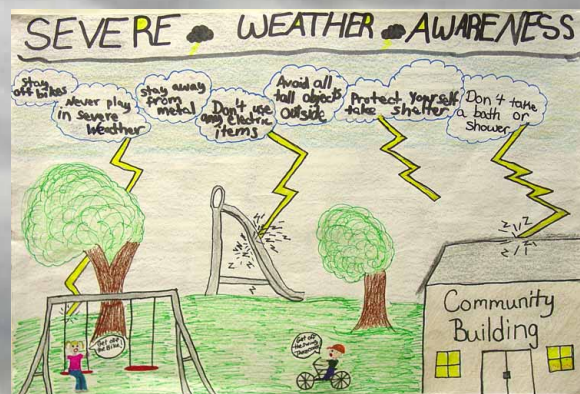 SEVERE WEATHER AWARENESS
Stay
off bikes
Never play
in severe
weather
stay away
from
metal
Don't use
any electric
items
Avoid all
tall objects
outside
Protect yourself
take shelter
Don't take
a bath or
shower
Get off
the Bike!
Get off
the swing
Community
Building